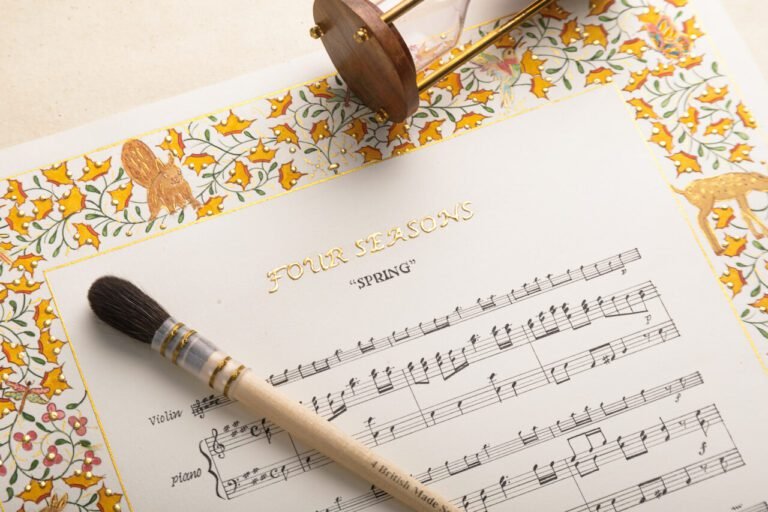 FOUR SEASONS
"SPRING"
Violin
piano
p
p
4 British Made